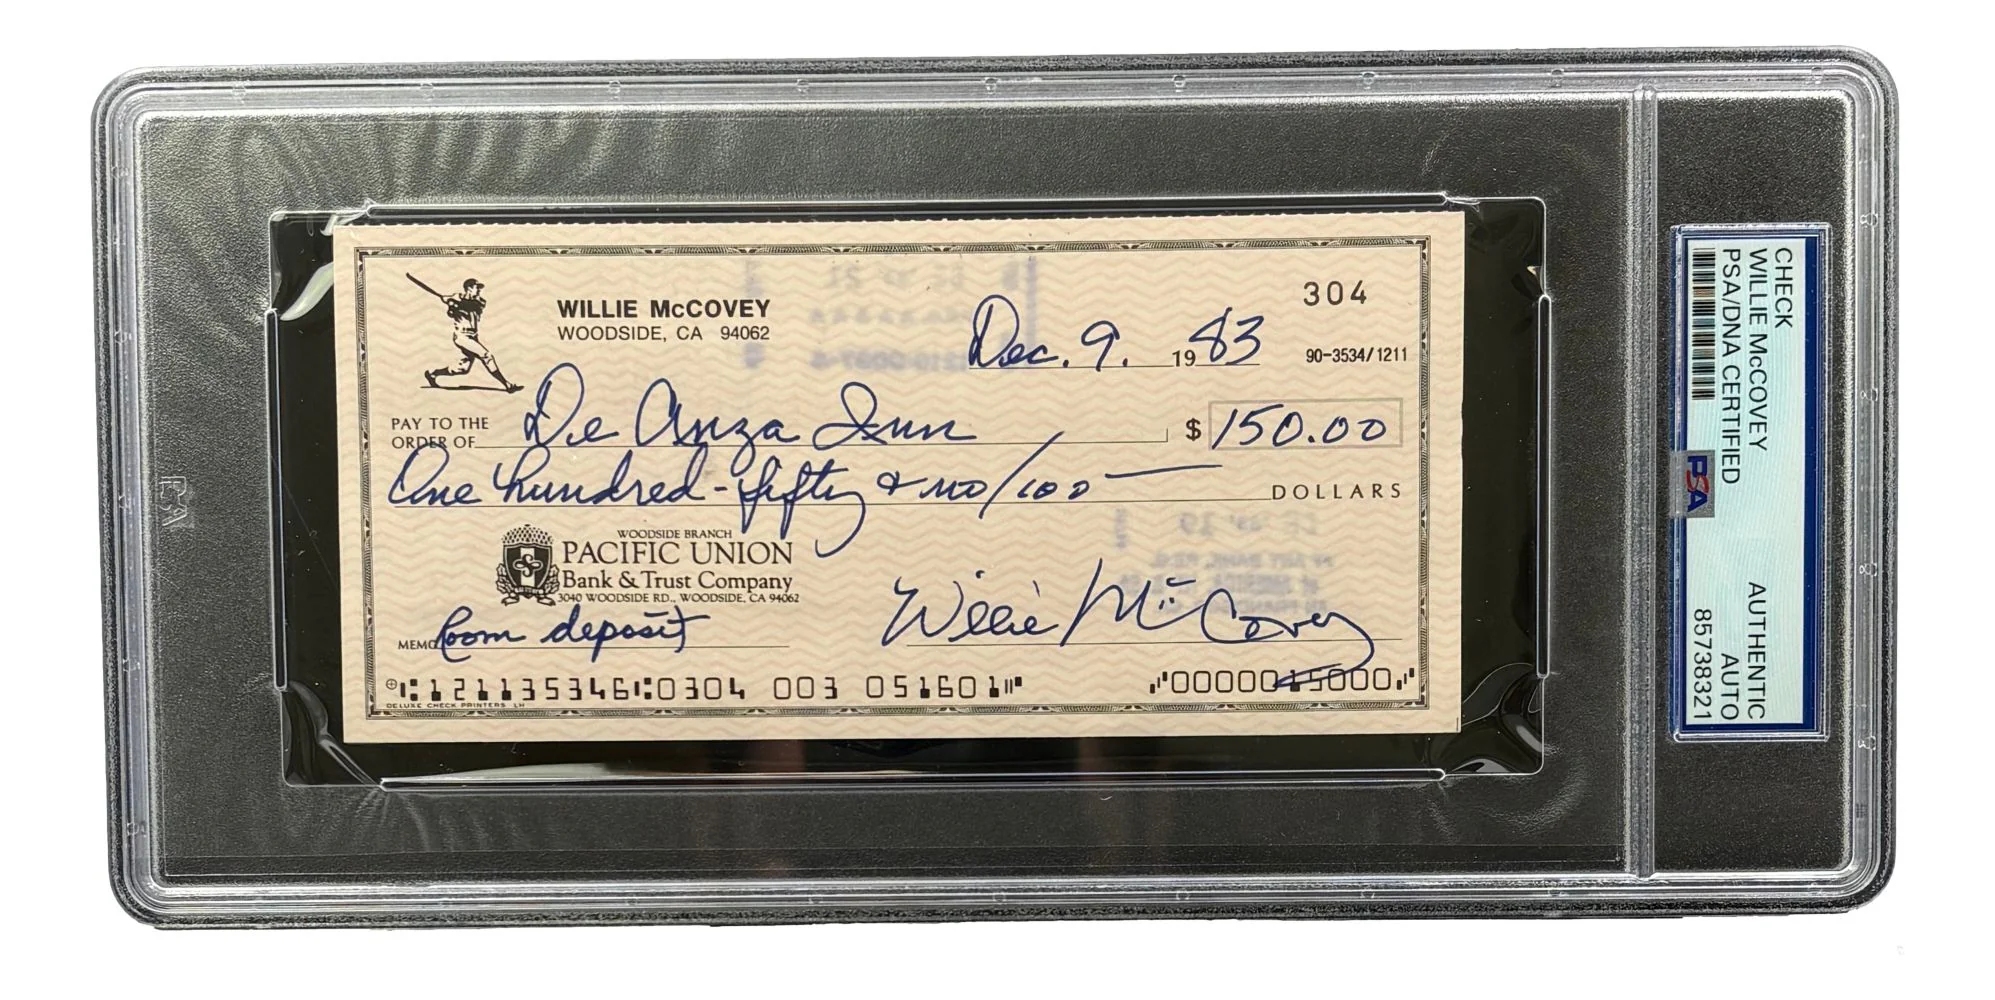 WILLIE McCOVEY
WOODSIDE, CA 94062
304
Dec. 9. 19 83
90-3534/1211
PAY TO THE
ORDER OF De Anza Inn $ 150.00
One hundred-fifty & no/100 DOLLARS
WOODSIDE BRANCH
PACIFIC UNION
Bank & Trust Company
3040 WOODSIDE RD., WOODSIDE, CA 94062
MEMO Room deposit Willie McCovey
⑆121135346⑆0304 003 051601⑈ ⑈0000015000⑈
DELUXE CHECK PRINTERS LH
CHECK
WILLIE McCOVEY
PSA/DNA CERTIFIED
PSA
AUTHENTIC
AUTO
85738321
PSA